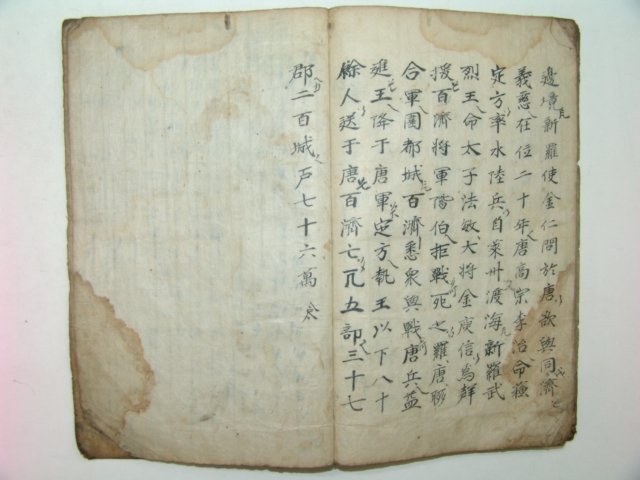 邊境新羅使金仁問於唐欲與同濟
義慈在位二十年唐高宗李治命蘇
定方率水陸兵自萊州渡海新羅武
烈王命太子法敏大將金庾信爲
援百濟將軍階伯拒戰死之羅唐
合軍圍都城百濟悉衆與戰唐兵益
進王降于唐軍定方執王以下八十
餘人送于唐百濟七 五部三十七
郡二百城戶七十六萬